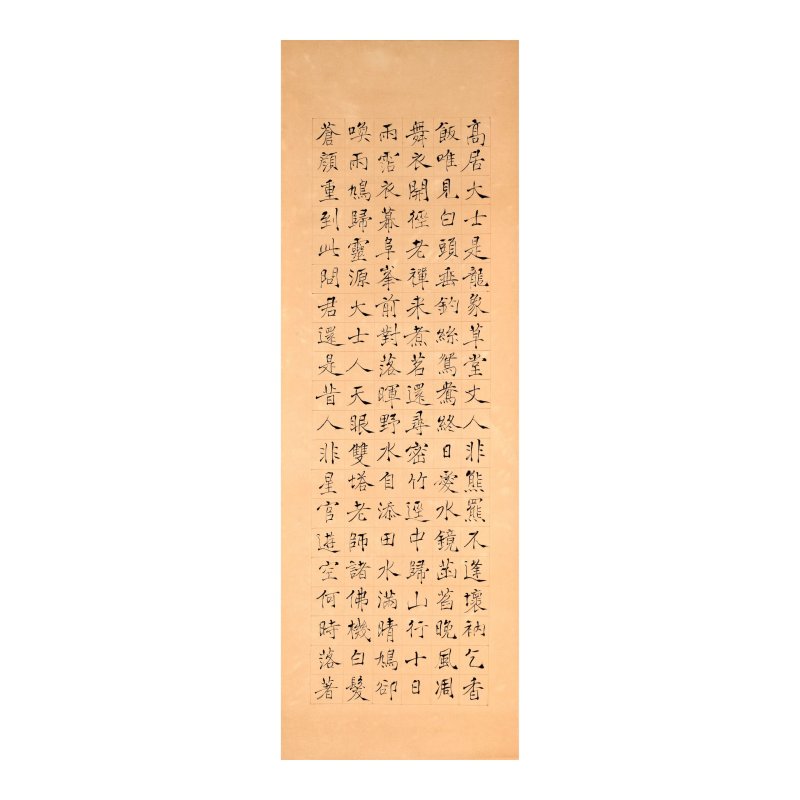 高居大士是龍象草堂丈人非熊羆不逢壞衲乞香
飯唯見白頭垂釣絲鴛鴦終日愛水鏡菡萏晚風凋
舞衣開徑老禪来煮茗還尋密竹逕中歸山行十日
雨霑衣幕阜峯前對落暉野水自添田水滿晴鳩卻
喚雨鳩歸靈源大士人天眼雙塔老師諸佛機白髮
蒼顏重到此問君還是昔人非星官遊空何時落著